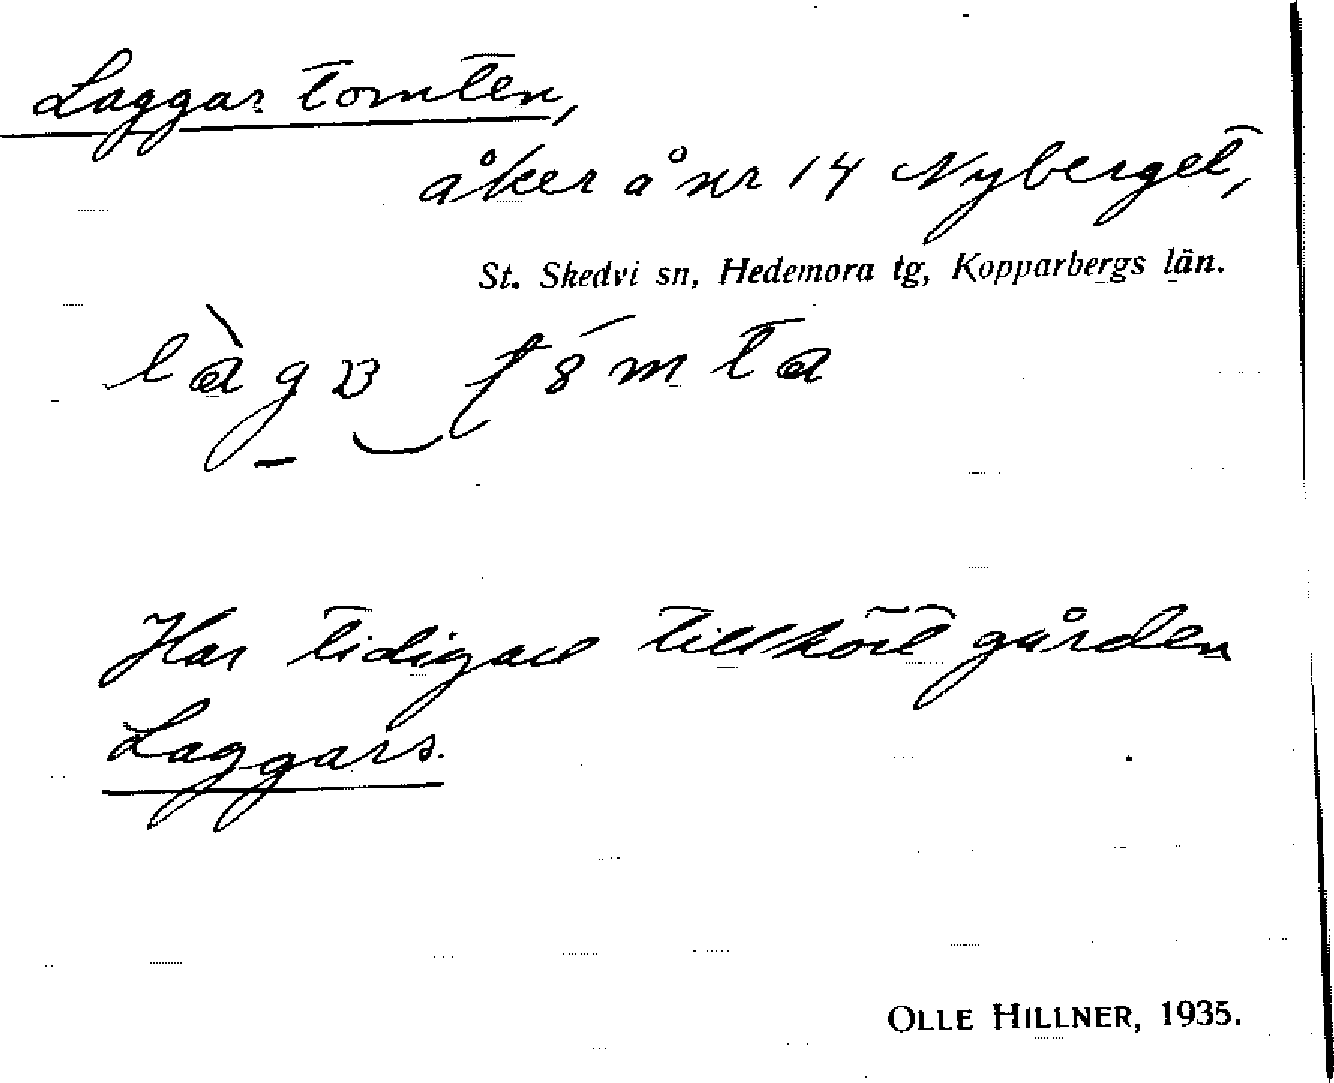 Laggar tomten,
åker å nr 14 Nyberget,
St. Skedvi sn, Hedemora tg, Kopparbergs län.
Har tidigare tillhört gården
Laggars.
OLLE HILLNER, 1935.